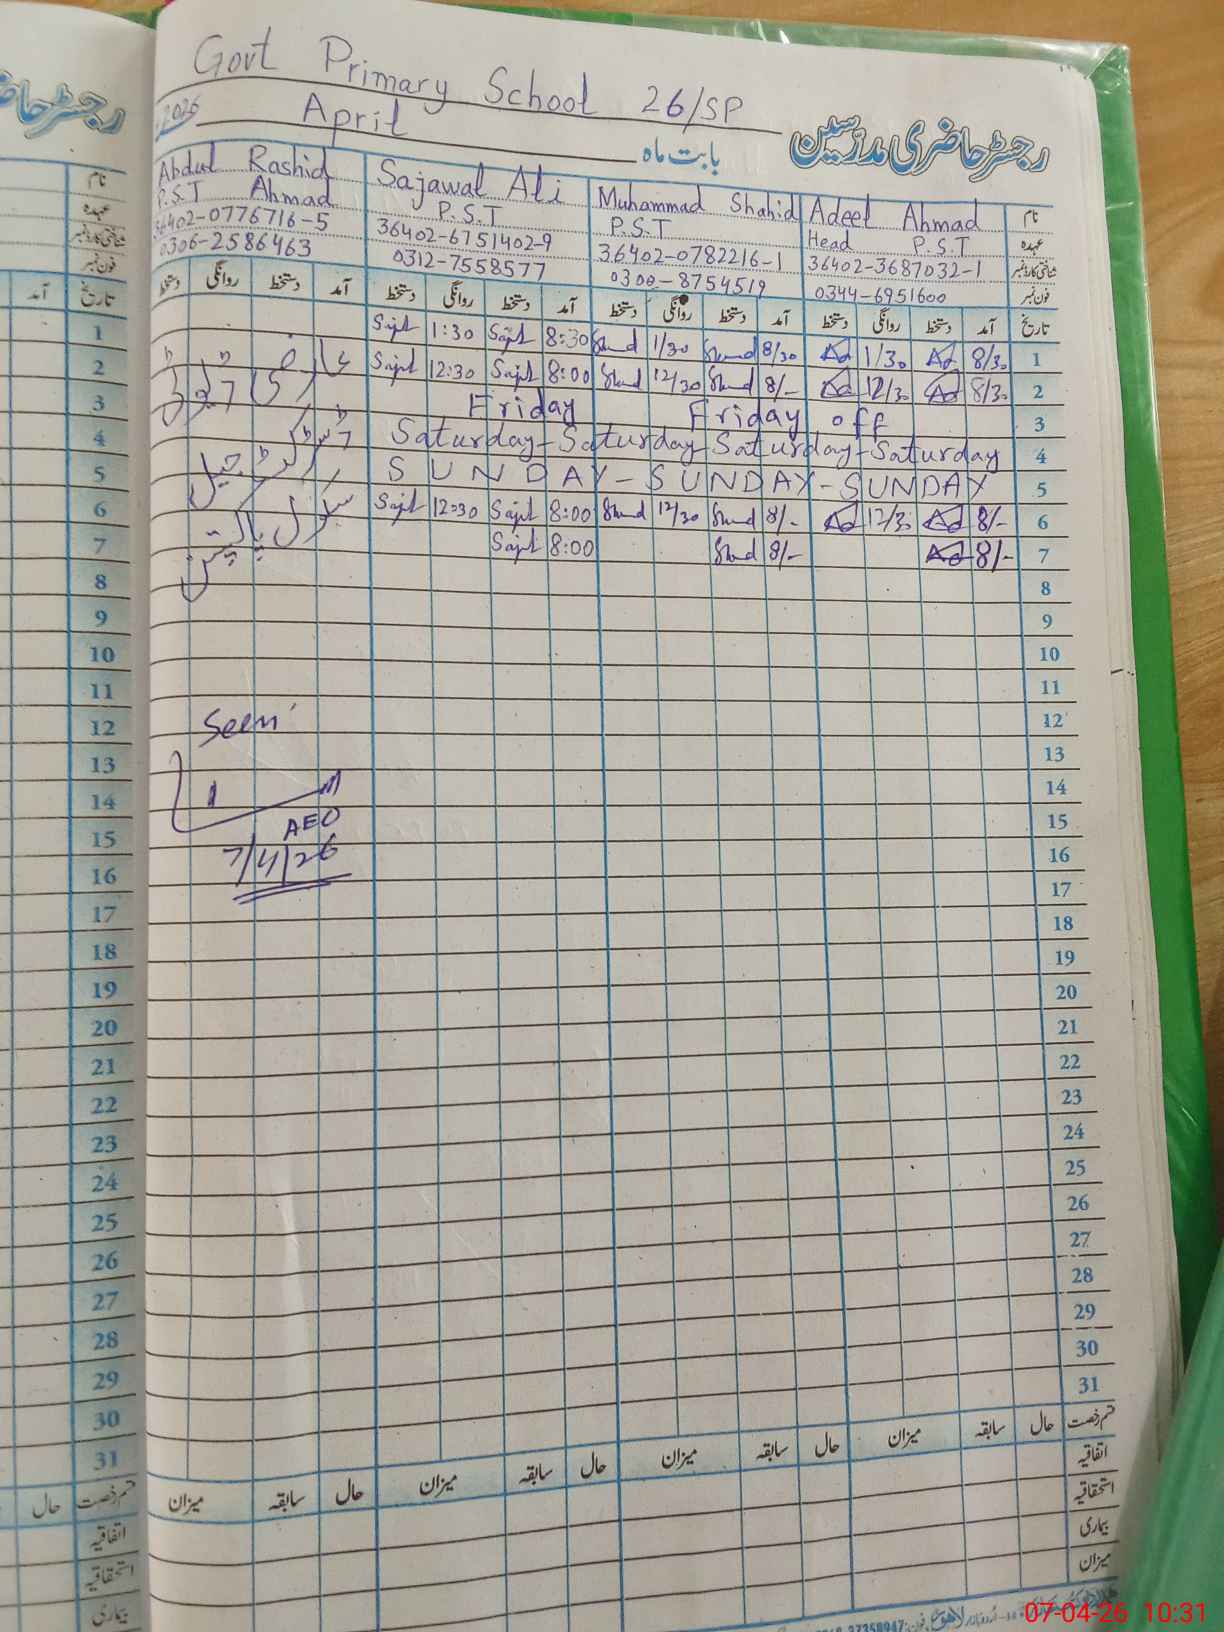 Govt Primary School 26/SP
2026 April بابت ماہ رجسٹر حاضری مدرسین
نام Adeel Ahmad Muhammad Shahid Sajawal Ali Abdul Rashid Ahmad
عہدہ Head P.S.T P.S.T P.S.T P.S.T
شناختی کارڈ نمبر 36402-3687032-1 36402-0782216-1 36402-6751402-9 36402-0776716-5
فون نمبر 0344-6951600 0300-8754519 0312-7558577 0306-2586463
تاریخ آمد دستخط روانگی دستخط آمد دستخط روانگی دستخط آمد دستخط روانگی دستخط آمد دستخط روانگی دستخط
1 8/30 Ad 1/30 Ad 8/30 Shahd 1/30 Shahd 8:30 Sajd 1:30 Sajd
2 8/30 Ad 12/30 Ad 8/- Shahd 12/30 Shahd 8:00 Sajd 12:30 Sajd
3 Friday Friday off
4 Saturday-Saturday-Saturday-Saturday
5 SUNDAY-SUNDAY-SUNDAY
6 8/- Ad 12/30 Ad 8/- Shahd 12/30 Shahd 8:00 Sajd 12:30 Sajd
7 8/- Ad 8/- Shahd 8:00 Sajd
عارضی ڈیوٹی
ڈسٹرکٹ جیل
سکول پاکپتن
8
9
10
11
12
13
14
15
16
17
18
19
20
21
22
23
24
25
26
27
28
29
30
31
Seen
AEO
7/4/26
قسم رخصت حال سابقہ میزان حال سابقہ میزان حال سابقہ میزان حال سابقہ میزان
اتفاقیہ
استحقاقیہ
بیماری
میزان
رجسٹر حا
نام
عہدہ
شناختی کارڈ نمبر
فون نمبر
تاریخ آمد
1
2
3
4
5
6
7
8
9
10
11
12
13
14
15
16
17
18
19
20
21
22
23
24
25
26
27
28
29
30
31
قسم رخصت حال
اتفاقیہ
استحقاقیہ
بیماری
اردو بازار لاہور فون: 37358947
07-04-26 10:31